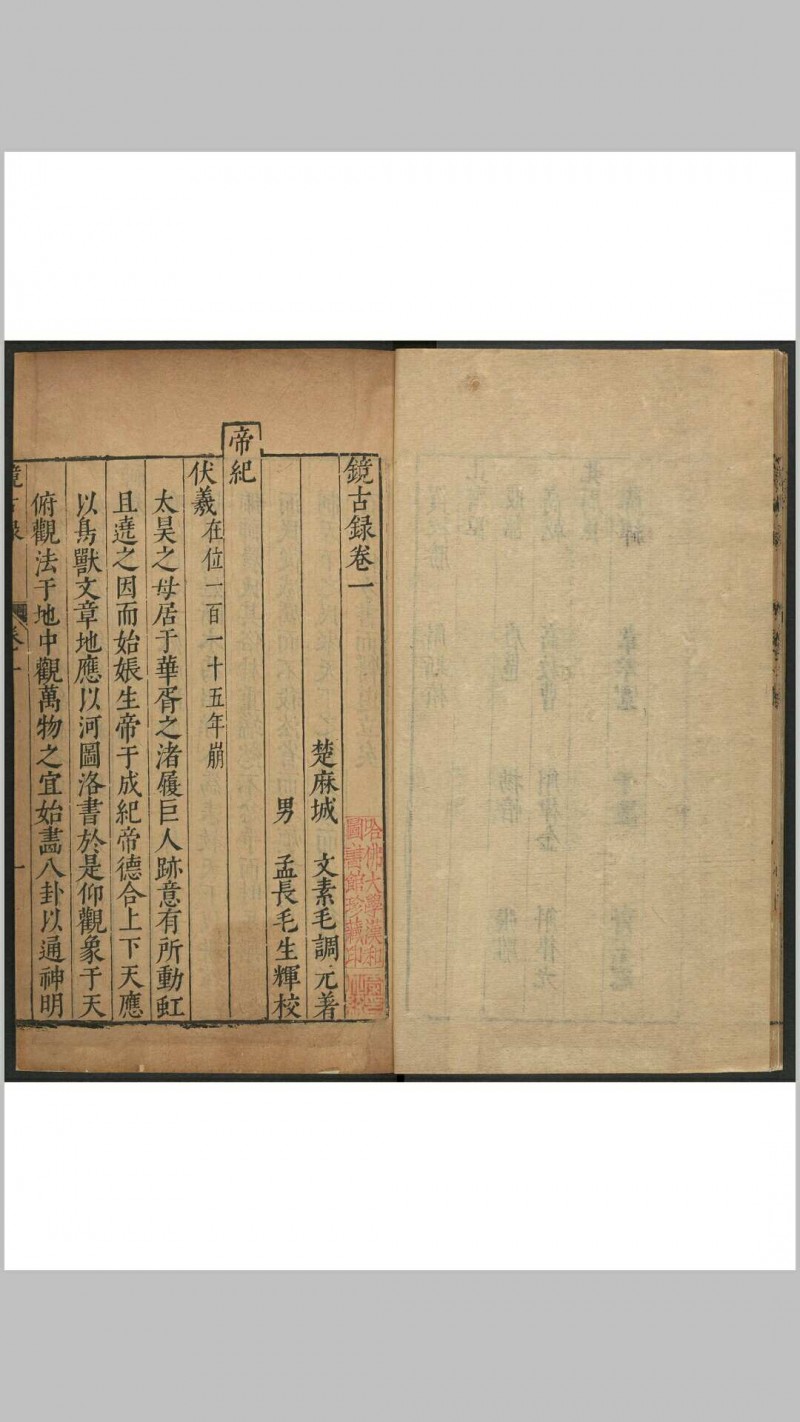 鏡古録卷一
楚麻城 文素毛調元著
男 孟長毛生輝校
帝紀
伏羲在位一百一十五年崩
太昊之母居于華胥之渚履巨人跡意有所動虹
且遶之因而始娠生帝于成紀帝德合上下天應
以鳥獸文章地應以河圖洛書於是仰觀象于天
俯觀法于地中觀萬物之宜始畵八卦以通神明
鏡古録 卷一 一
哈佛大學漢和
圖書館珍藏印